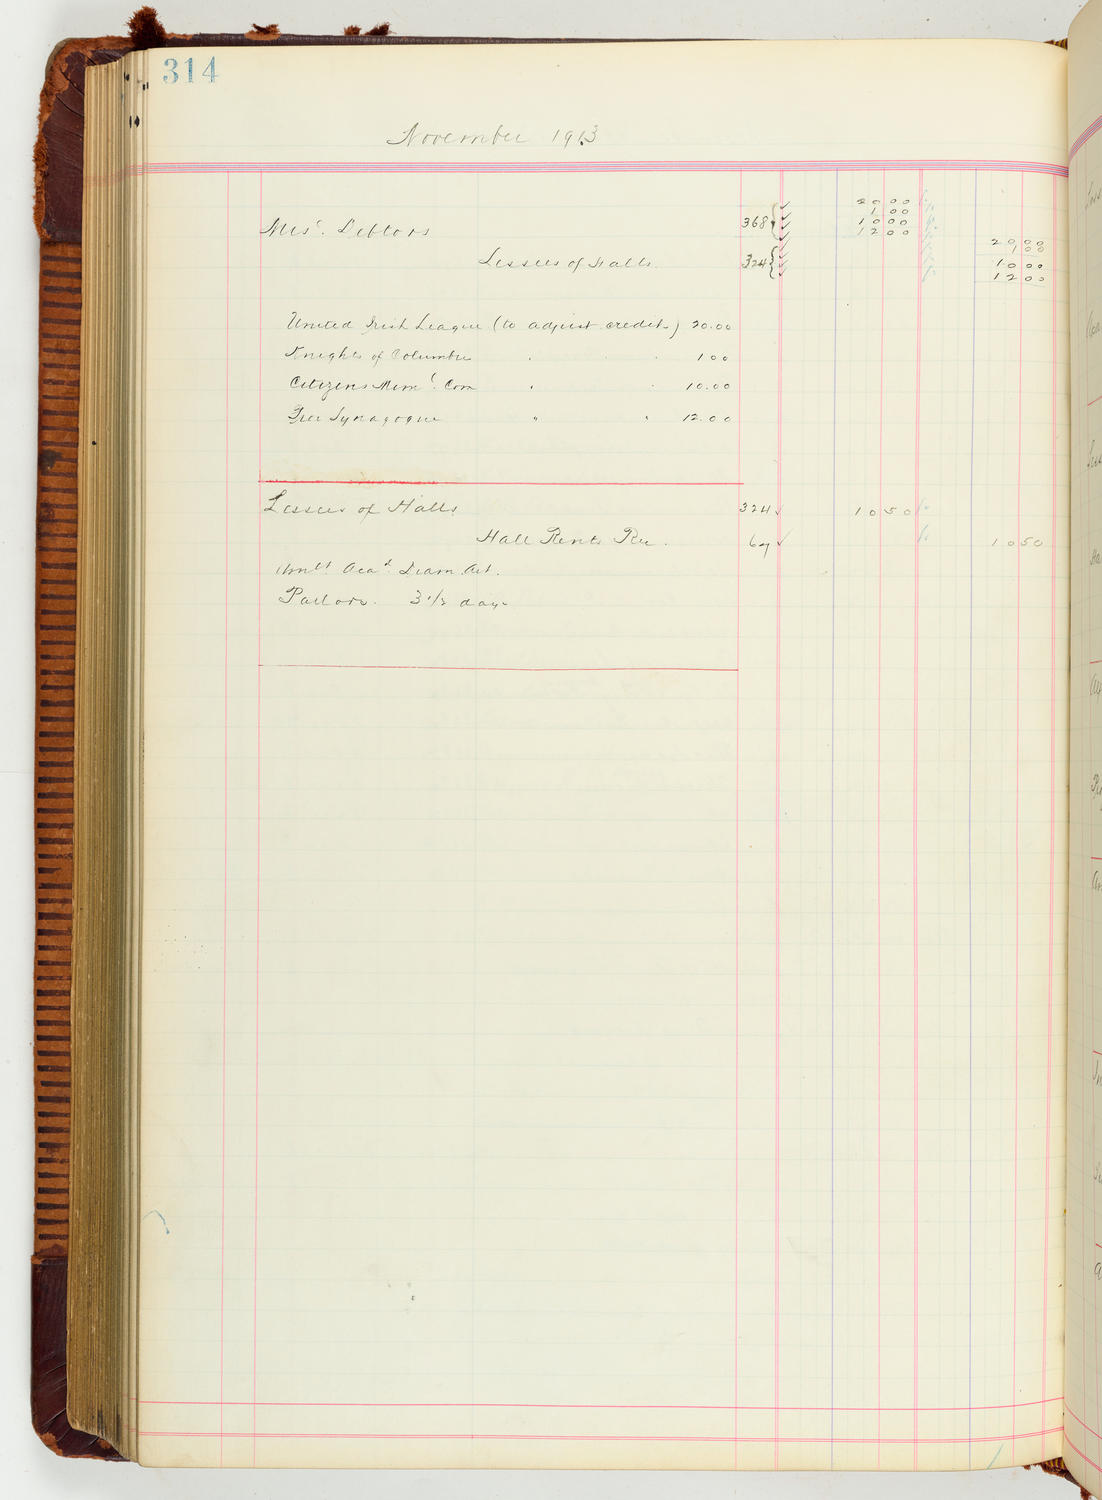 314
November 1913
20 00
1 00
Mis'. Debtors 368 10 00
12 00
20 00
1 00
Lessees of Halls 324 10 00
12 00
United Irish League (to adjust credit) 20.00
Knights of Columbus " " 1 00
Citizens Mem'. Com " " 10.00
Free Synagogue " " 12.00
Lessees of Halls 324 10 50
Hall Rents Rec. 67 10 50
Acad. Dram. Art.
Parlors. 3 1/2 days